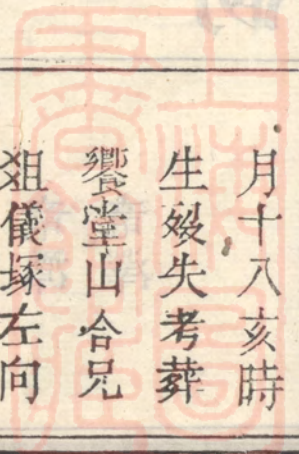 月十八亥時
生殁失考葬
饗堂山合兄
爼儀塚左向